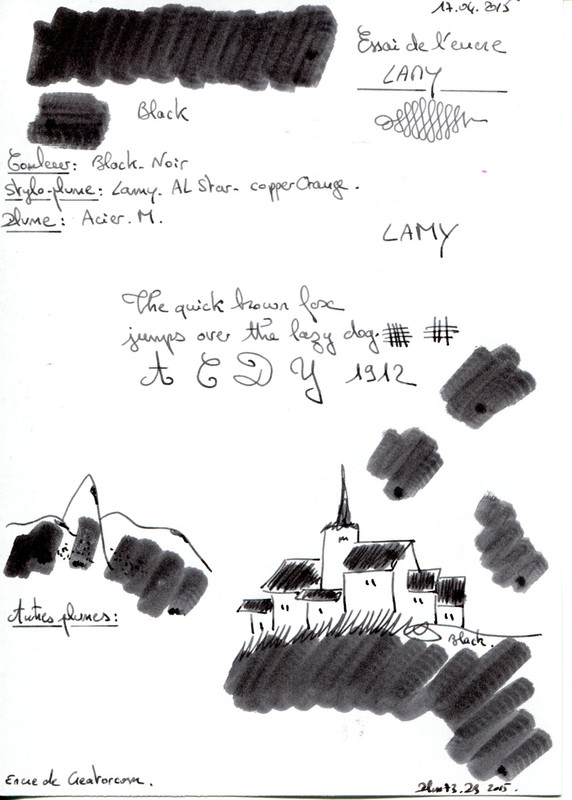 17.04.2015
Essai de l'encre
LAMY
Black
Couleur: Black - Noir
Stylo-plume: Lamy - AL Star - copperOrange.
Plume: Acier. M.
LAMY
The quick brown fox
jumps over the lazy dog.
A C D Y 1912
Autres plumes:
Black.
Encre de
2015.